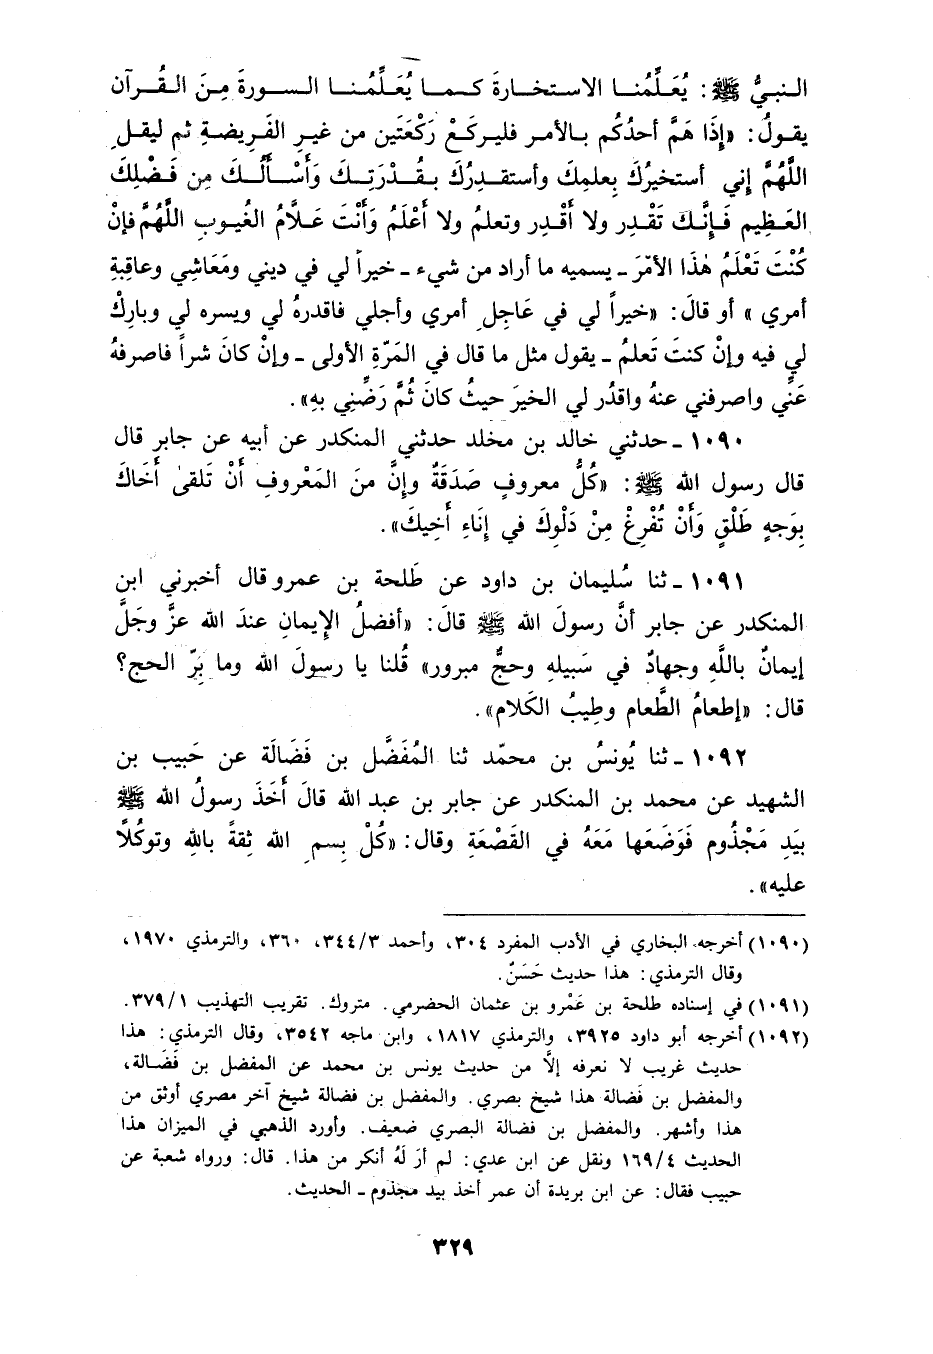 النبيُّ ﷺ: يُعَلِّمُنا الاستخارةَ كما يُعَلِّمُنا السورةَ مِنَ القُرآن
يقولُ: «إذَا هَمَّ أحدُكُم بالأمر فليركَعْ رَكْعَتَين من غيرِ الفَريضةِ ثم ليقل
اللَّهُمَّ إني أستخيرُكَ بِعلمِكَ وأستقدِرُكَ بقُدْرَتِكَ وَأَسْأَلُكَ مِن فَضْلِكَ
العَظِيم فَإنَّكَ تَقْدِر ولا أَقْدِر وتعلمُ ولا أَعْلَمُ وَأَنْتَ عَلَّامُ الغُيوبِ اللَّهُمَّ فإنْ
كُنْتَ تَعْلَمُ هٰذَا الأمْرَ ـ يسميه ما أراد من شيء ـ خيراً لي في ديني ومَعَاشِي وعاقِبةِ
أمري» أو قالَ: «خيراً لي في عَاجِلِ أمري وأجلي فاقدرهُ لي ويسره لي وبارِكْ
لي فيه وإنْ كنتَ تَعلمُ ـ يقول مثل ما قال في المَرّةِ الأولى ـ وإنْ كانَ شراً فاصرفهُ
عَنِّي واصرفني عنهُ واقدُر لي الخيرَ حيثُ كانَ ثُمَّ رَضِّنِي بِهِ».
١٠٩٠ ـ حدثني خالد بن مخلد حدثني المنكدر عن أبيه عن جابر قال
قال رسول الله ﷺ: «كُلُّ معروفٍ صَدَقَةٌ وإنَّ منَ المَعْروفِ أنْ تَلقىٰ أَخَاكَ
بِوَجهٍ طَلْقٍ وَأَنْ تُفْرِغْ مِنْ دَلْوِكَ في إنَاءِ أَخِيكَ».
١٠٩١ ـ ثنا سُليمان بن داود عن طَلحة بن عمرو قال أخبرني ابن
المنكدر عن جابر أنَّ رسولَ الله ﷺ قالَ: «أفضلُ الإيمانِ عندَ الله عزَّ وجَلَّ
إيمانٌ باللَّهِ وجهادٌ في سَبيلهِ وحجٌّ مبرور» قُلنا يا رسولَ الله وما بِرّ الحج؟
قال: «إطعامُ الطَّعام وطِيبُ الكَلام».
١٠٩٢ ـ ثنا يُونسُ بن محمّد ثنا المُفَضَّل بن فَضَالَة عن حَبيب بن
الشهيد عن محمد بن المنكدر عن جابر بن عبد الله قالَ أَخَذَ رسولُ الله ﷺ
بيَدِ مَجْذُوم فَوَضَعَها مَعَهُ في القَصْعَةِ وقال: «كُلْ بِسمِ الله ثِقةً باللهِ وتوكُلًا
عليه».
(١٠٩٠) أخرجه البخاري في الأدب المفرد ٣٠٤، وأحمد ٣٤٤/٣، ٣٦٠، والترمذي ١٩٧٠،
وقال الترمذي: هذا حديث حَسَنٌ.
(١٠٩١) في إسناده طلحة بن عَمْرو بن عثمان الحضرمي. متروك. تقريب التهذيب ٣٧٩/١.
(١٠٩٢) أخرجه أبو داود ٣٩٢٥، والترمذي ١٨١٧، وابن ماجه ٣٥٤٢، وقال الترمذي: هذا
حديث غريب لا نعرفه إلَّا من حديث يونس بن محمد عن المفضل بن فَضَالة،
والمفضل بن فَضَالة هذا شيخ بصري. والمفضل بن فضالة شيخ آخر مصري أوثق من
هذا وأشهر. والمفضل بن فضالة البصري ضعيف. وأورد الذهبي في الميزان هذا
الحديث ١٦٩/٤ ونقل عن ابن عدي: لم أرَ لَهُ أنكر من هذا. قال: ورواه شعبة عن
حبيب فقال: عن ابن بريدة أن عمر أخذ بيد مجذوم ـ الحديث.
٣٢٩